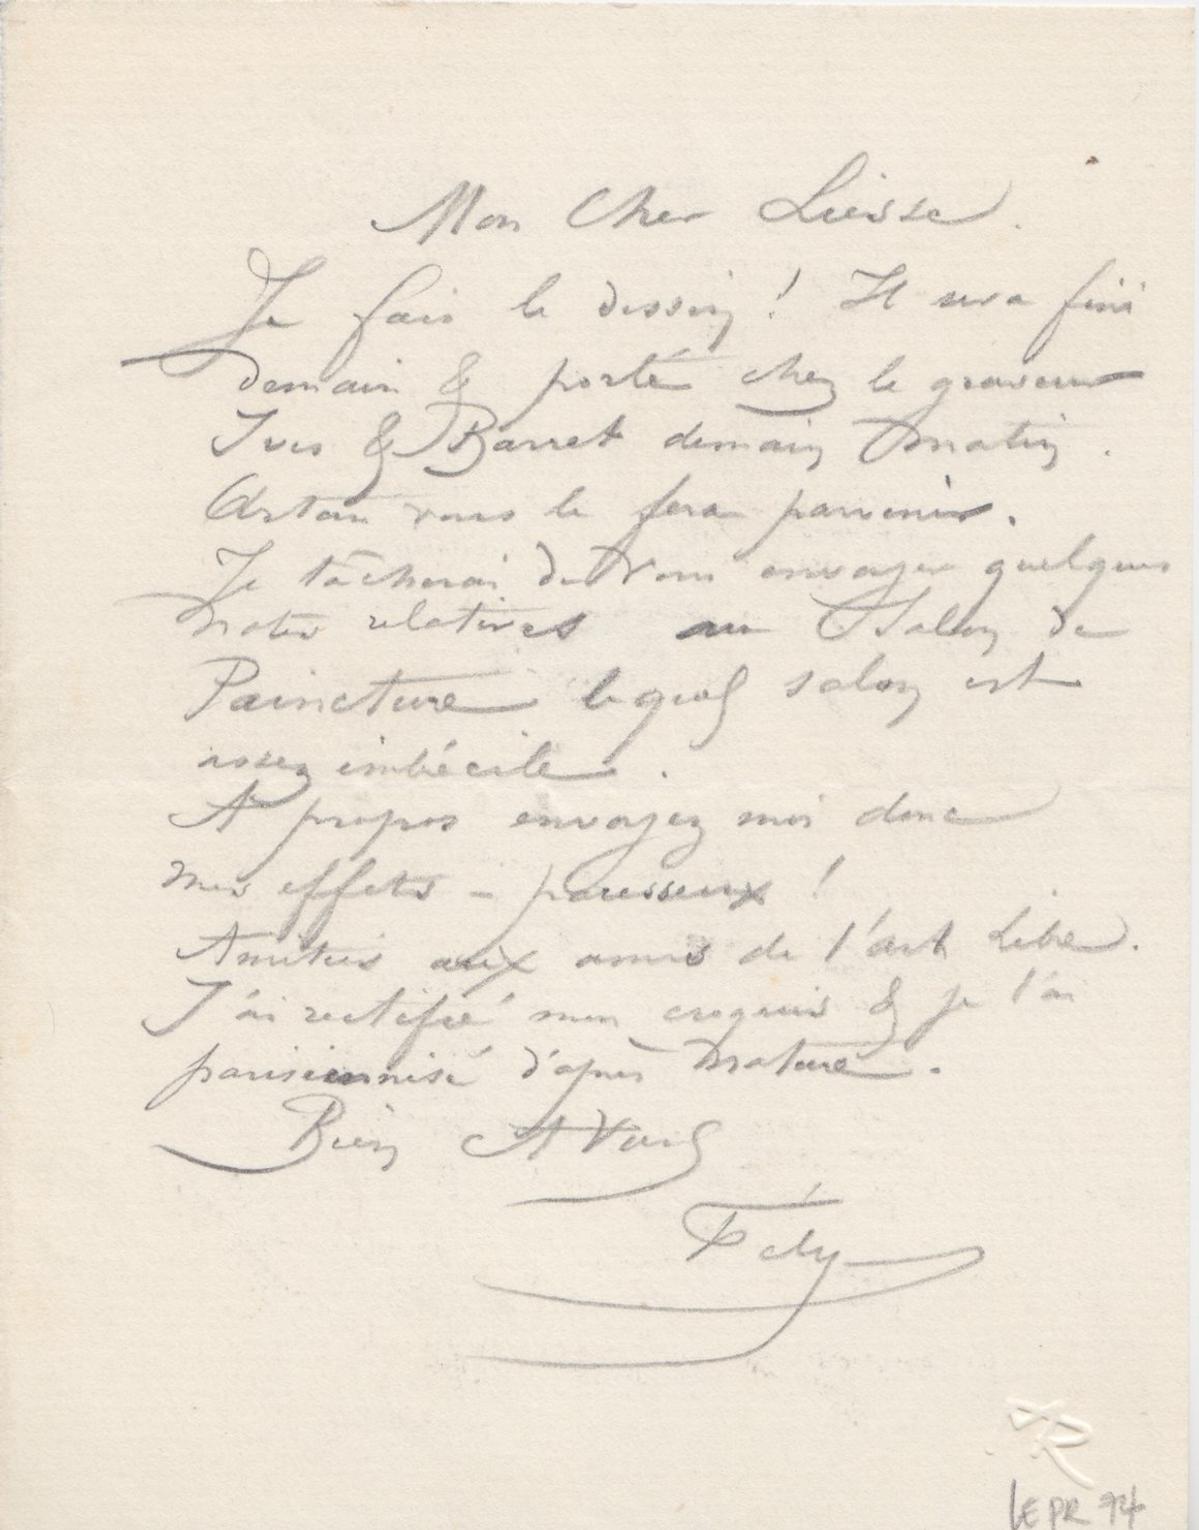 Mon Cher Liesse.
Je fais le dessin ! Il sera fini
demain & porté chez le graveur
Yves & Barret demain matin.
Artan vous le fera parvenir.
Je tâcherai de vous envoyer quelques
notes relatives au Salon de
Paincture lequel salon est
assez imbécile.
A propos envoyez moi donc
mes effets – paresseux !
Amitiés aux amis de l'art Libre.
J'ai rectifié mon croquis & je l'ai
parisiennisé d'après nature.
Bien A Vous
Fély
LEPR 74